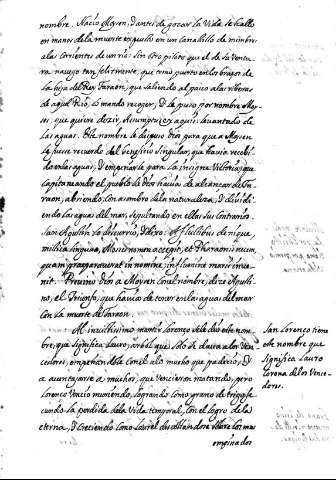 nombre. Nacio Moysen, y antes de gozar la Vida se hallo
en manos de la muerte expuesto en un canastillo de mimbres
a las corrientes de un rio: sin otro piloto que el de la ventu-
ra. navego tan felizmente, que tomo puerto en los brazos de
la hija del Rey Faraon, que saliendo al paseo a las riberas
de aquel Rio, lo mando recoger, y le puso por nombre Moy-
ses, que quiere dezir, Assumptus ex aquis: levantado de
las aguas. Este nombre le dispuso Dios para que a Moysen
le fuesse recuerdo del beneficio singular, que havia recebi-
do en las aguas, y empeñarle para la insigne Vitoria, que
capitaneando el pueblo de Dios havia de alcanzar de Fa-
raon, abriendo, con assombro de la naturaleza, y dividi-
endo las aguas del mar, sepultando en ellas sus contrarios.
San Agustin lo discurrio, y dixo: A flictibus denique
mistica lingua, Moisis nomen accepit, et Pharaonis necem,
quam praeparavit in nomine, in flumine maris inve-
nit. Previno Dios a Moysen con el nombre, dize Agusti-
no, el Triunfo, que havia de tener en las aguas del mar
con la muerte de Faraon.
Al invictissimo martir Lorenço le dio Dios este nom-
bre, que significa Lauro, arbol que solo se dava a los Ven-
cedores, empeñandole con el a lo mucho que padecio, y
a aventajarse a muchos, que vencieron matando, pero
Lorenço vencio muriendo, logrando como grano de trigo fe-
cundo la perdida de la Vida temporal, con el logro de la
eterna, y creciendo como Laurel descollandose sobre los mas
empinados
San Lorenço tiene
este nombre que
significa Lauro
Corona de los Vence-
dores.